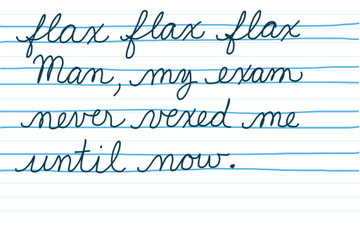 flax flax flax
Man, my exam
never vexed me
until now.